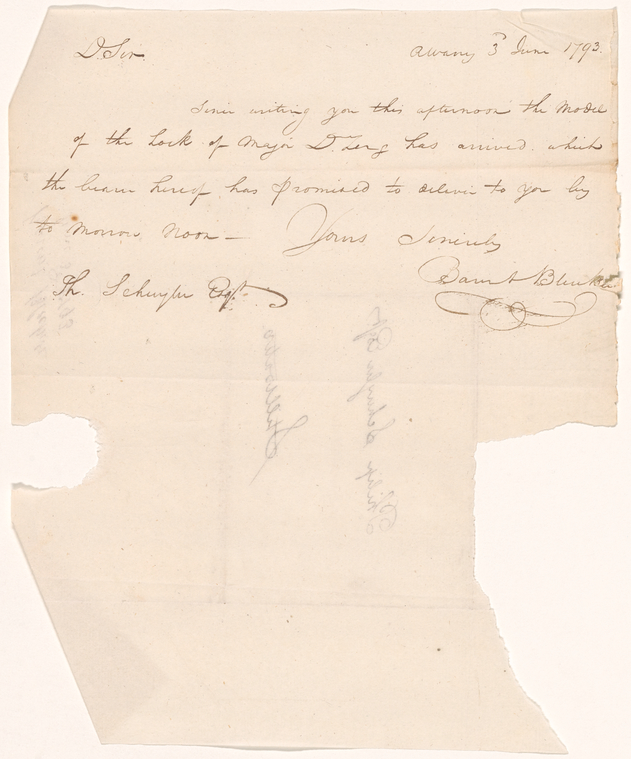 D. Sir
Albany 3d June 1793.
Since writing you this afternoon the Model
of the Lock of Major D. Zeng has arrived which
the bearer hereof has promised to deliver to you by
to morrow Noon —
Yours Sincerely
Barent Bleecker
Ph. Schuyler Esqr.
Philip Schuyler Esqr
Stillwater